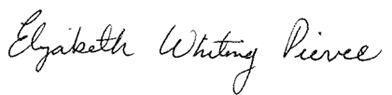 Elizabeth Whiting Pierce